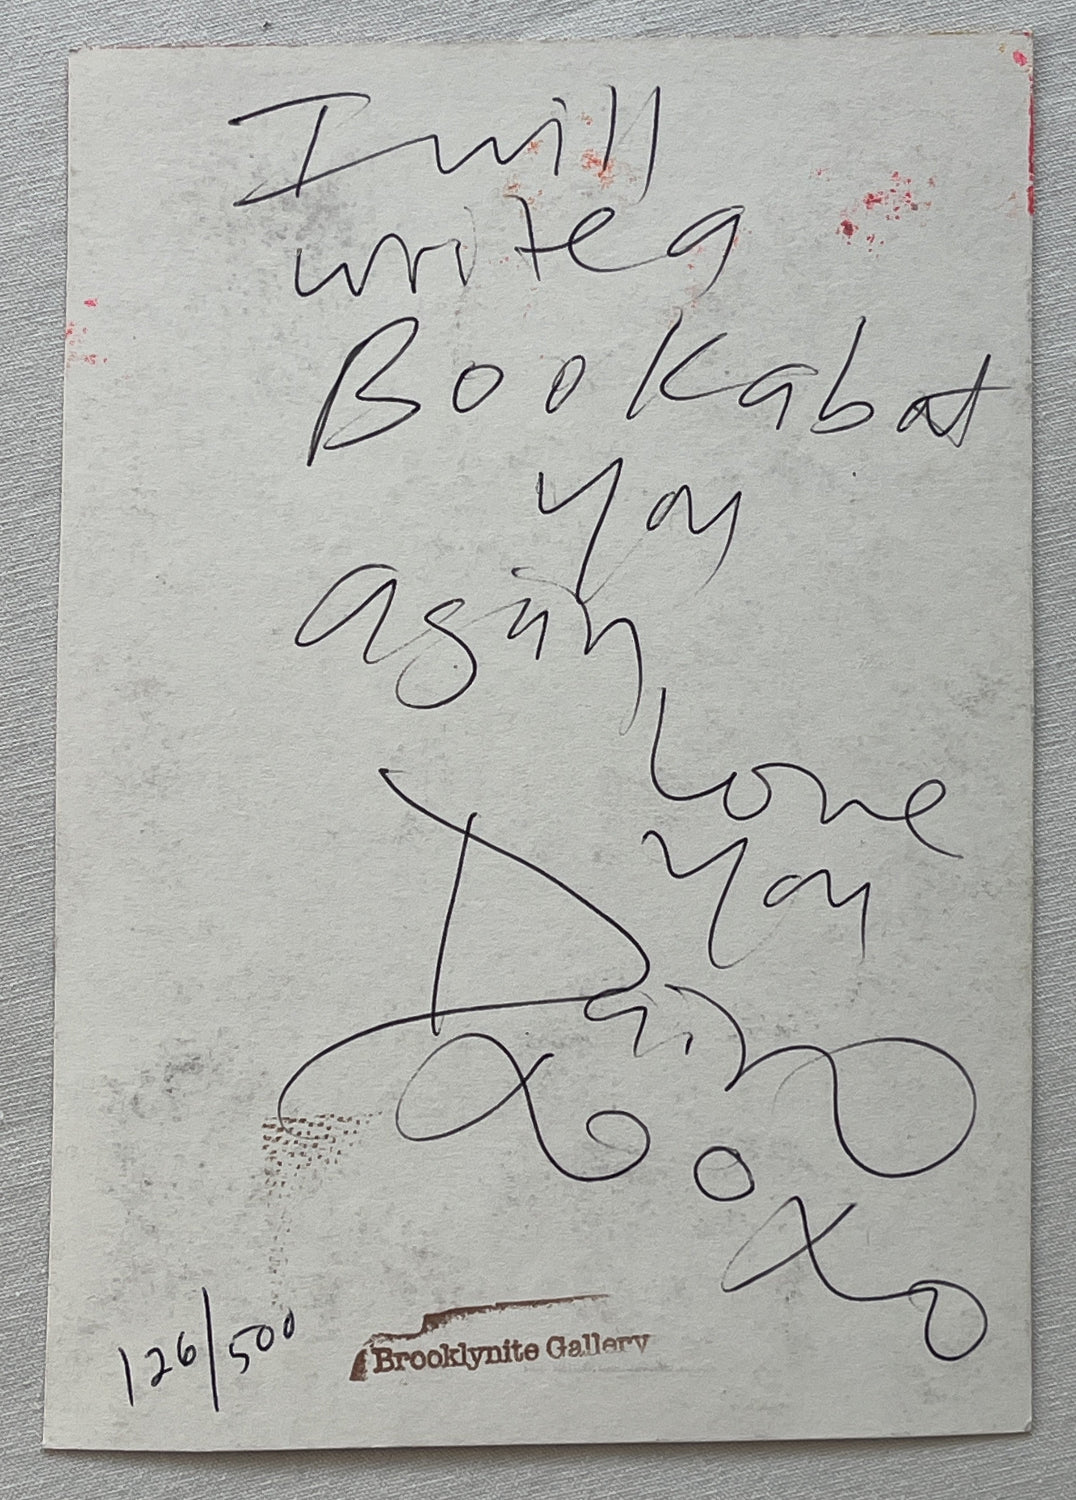 I will
write a
Book abot
you
again
Love
you
Dain
xo o
xo
126/500
Brooklynite Gallery